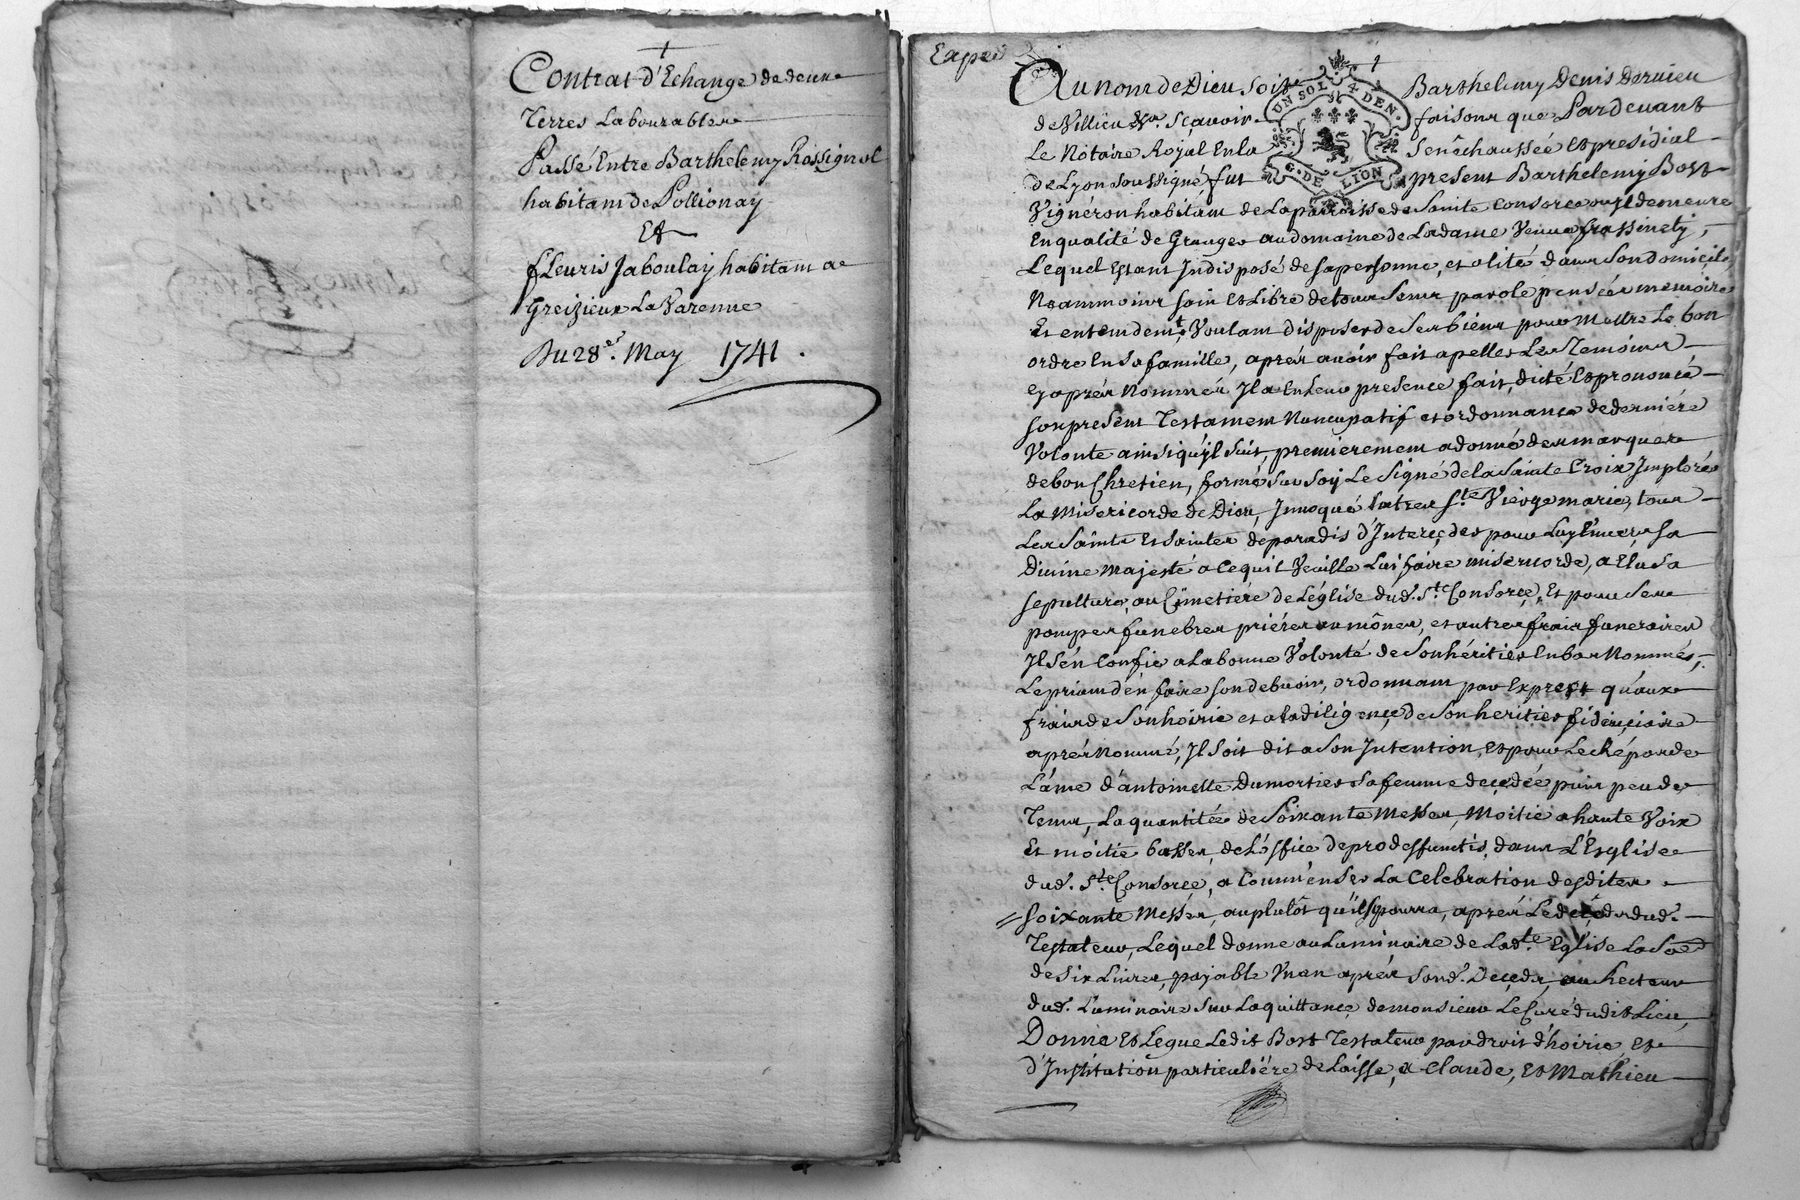 Contrat d'Echange de deux
Terres Labourables
Passé Entre Barthelemy Rossignol
habitant de Pollionay
Et
fleuris Jaboulay habitant a
Greizieux La Varenne
Du 28es. May 1741.
Exped
Au nom de Dieu soit Barthelemy Denis Dervieu
de Villieu Sçavoir faisons que Pardevant
Le Notaire Royal En la Senêchaussée et presidial
de Lyon soussigné fut present Barthelemy Bost
UN SOL 4 DEN.
G. DE LION
Vignéron habitant de La parroisse de Sainte Consorce ou Jl demeure
En qualité de Granger au domaine de La dame Veuve frassinety,
Lequel Estant Jndisposé de sa personne, et alité dans Son domicile,
Neammoins sain et Libre de tous Sens parole pensées memoire
Et entendemt, Voulant disposer de Ses biens pour Mettre Le bon
ordre En Sa famille, aprés avoir fait apeller Les Temoins
cy aprés Nommés, Jl a En Leur presence fait, dicté Et prononcé
son present Testament Nuncupatif et ordonnance de derniére
Volonté ainsi qu'il Suit, premierement a donné des marques
de bon Chretien, formé Sur Soy Le Signe de la Sainte Croix Jmploré
La Misericorde de Dieu, Jnvoqué La tres Ste Vierge marie, tous
Les Saints Et Saintes de paradis d'Interçeder pour Luy Envers Sa
divine Majesté a Ce quil Veuille Lui faire misericorde, a Elu Sa
sepulture, au Cimetiére de L'église dud. Ste Consorce, Et pour Ses
pompes funebres priéres aumônes, et autres frais funeraires
Jl s'én Confie a La bonne Volonté de Son héritier En bas Nommé,
Le priant d'én faire son debvoir, ordonnant par Exprest qu'aux
frais de Son hoirie et a La diligençe de Son heritier fideiçiaire
aprés Nommé, Jl Soit dit a Son Jntention, Et pour Le Répos de
L'áme d'ántoinette Dumortier Sa femme deçedée puis peu de
Tems, La quantitée de Soixante Messes, Moitié a haute Voix
Et moitié basses, de L'óffice de pro deffunctis, dans L'Esglise
dud. Ste Consorce, a Commenser La Celebration desdites
soixante Messes, au plutôt qu'il Se pourra, aprés Le decéds dud.
Testateur, Lequel donne au Luminaire de Lad.te Eglise La Soe
de Six Livres, payable Un an aprés Sond. Deçeds, au Recteur
dud. Luminaire Sur La quittance de monsieur Le Curé dudit Lieu,
Donne Et Legue Ledit Bost Testateur par droit d'hoirie Et
d'Institution particuliëre de Laisse, a Claude, Et Mathieu